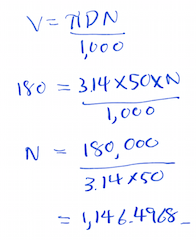 V = πDN
1,000
180 = 3.14 × 50 × N
1,000
N = 180,000
3.14 × 50
= 1,146.4968